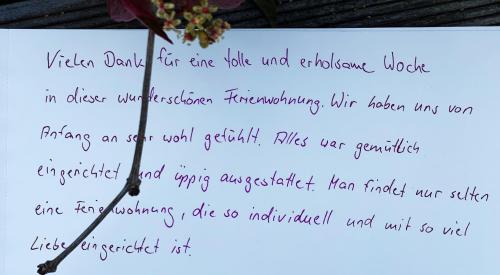 Vielen Dank für eine tolle und erholsame Woche
in dieser wunderschönen Ferienwohnung. Wir haben uns von
Anfang an sehr wohl gefühlt. Alles war gemütlich
eingerichtet und üppig ausgestattet. Man findet nur selten
eine Ferienwohnung, die so individuell und mit so viel
Liebe eingerichtet ist.